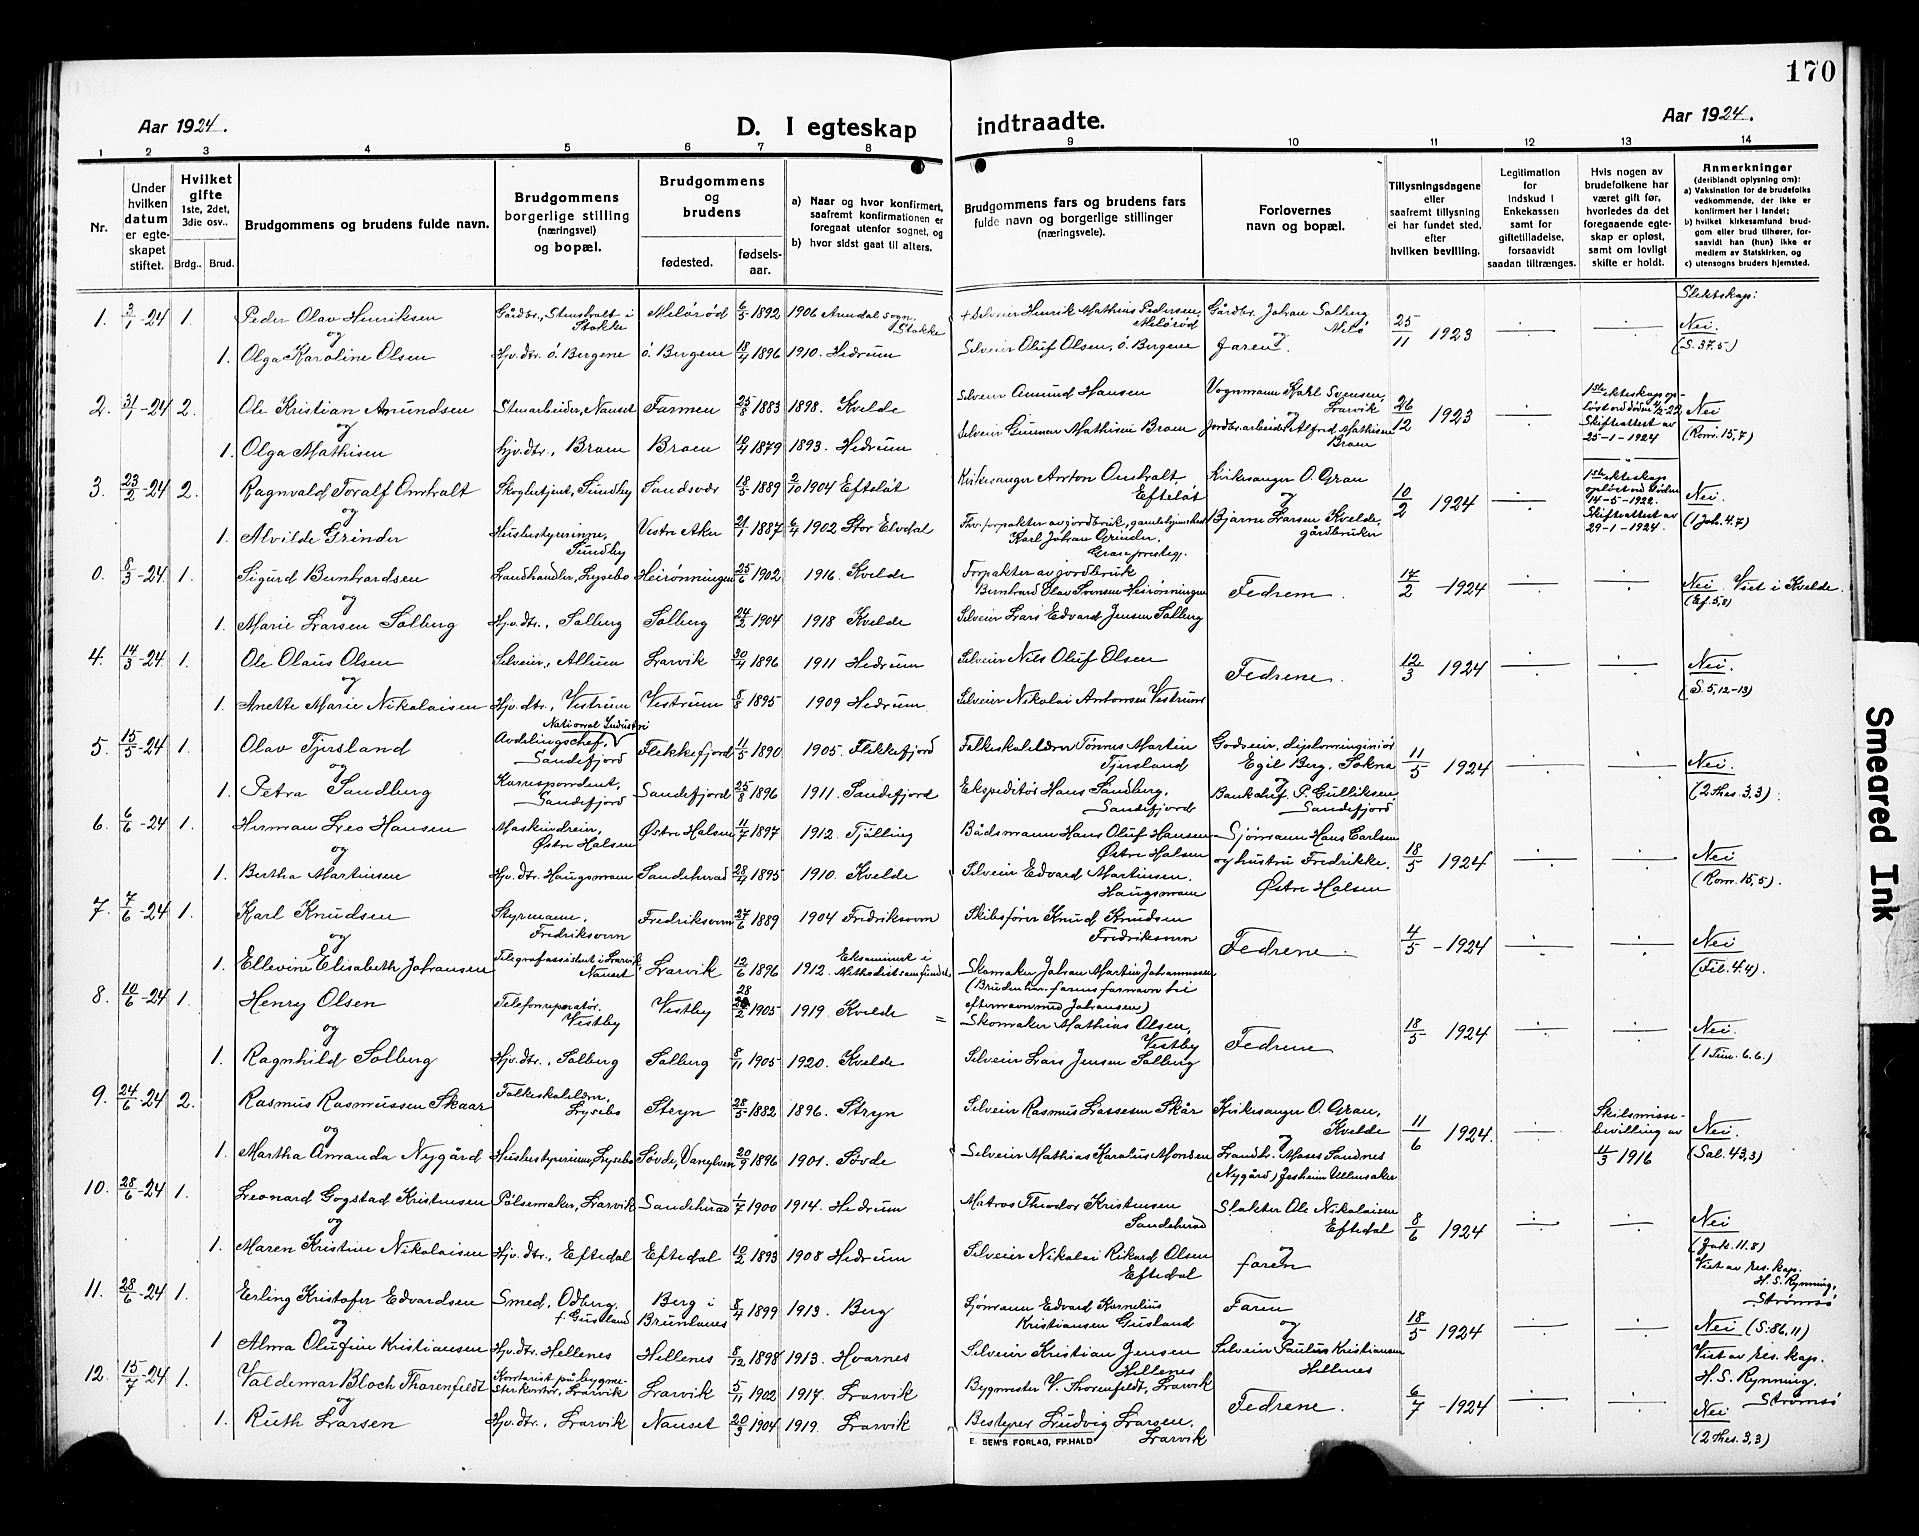 170
Aar 1924.
D. I egteskap indtraadte.
Aar 1924.
1 2 3 4 5 6 7 8 9 10 11 12 13 14
Nr.
Under hvilken datum er egteskapet stiftet.
Hvilket gifte 1ste, 2det, 3die osv.
Brdg. Brud.
Brudgommens og brudens fulde navn.
Brudgommens borgerlige stilling (næringsvei) og bopæl.
Brudgommens og brudens
fødested.
fødselsaar.
a) Naar og hvor konfirmert, saafremt konfirmationen er foregaat utenfor sognet, og
b) hvor sidst gaat til alters.
Brudgommens fars og brudens fars fulde navn og borgerlige stillinger (næringsveie).
Forlovernes navn og bopæl.
Tillysningsdagene eller saafremt tillysning ei har fundet sted, efter hvilken bevilling.
Legitimation for indskud i Enkekassen samt for giftetilladelse, forsaavidt saadan tiltrænges.
Hvis nogen av brudefolkene har været gift før, hvorledes da det foregaaende egteskap er opløst, samt om lovligt skifte er holdt.
Anmerkninger
(deriblandt oplysning om):
a) Vaksination for de brudefolks vedkommende, der ikke er konfirmert her i landet;
b) hvilket kirkesamfund brudgom eller brud tilhører, forsaavidt han (hun) ikke er medlem av Statskirken, og
c) utensogns bruders hjemsted.
Slektskap:
1. 3/1-24 1. Peder Olav Henriksen Gårdbr., Stenshalt i Stokke Melørød 6/5 1892 1906 Arundal sogn, Stokke + Selveier Henrik Mathias Pedersen, Melørød Gårdbr. Johan Solberg Melø 25/11 1923 Nei. (S. 37.5)
og
1. Olga Karoline Olsen Hjv. dtr. ö. Bergene ö. Bergene 18/4 1896 1910. Hedrum Selveier Oluf Olsen, ö. Bergene og Faren.
2. 31/1-24 2. Ole Kristian Amundsen Stenarbeider, Nanset Farmen 25/8 1883 1898. Kvelde Selveier Amund Hansen Vognmann Karl Svensen, Larvik 26/12 1923 1ste ekteskap opløst ved døden 4/2-22 Skifteattest av 25-1-1924 Nei (Rom. 15,7)
og
1. Olga Mathisen Hjv. dtr., Braem Braem 10/4 1879 1893. Hedrum Selveier Gunnar Mathisen Braem og Jordbr. arbeider Alfred Mathisen Braem
3. 23/2-24 2. Ragnvald Toralf Omholt Skogbetjent, Sundby Sandsvær 18/5 1889 2/10 1904 Efteløt Kirkesanger Anton Omholt Efteløt Kirkesanger O. Grau 10/2 1924 1ste ekteskap opløst ved døden 14-5-1922. Skifteattest av 29-1-1924. Nei. (1 Joh. 4.7)
og
1. Alvilde Grinder Husbestyrerinne, Sundby Vestre Aker 21/1 1887 6/4 1902 Stor Elvdal Fhv. forpakter av jordbruk, gamlehjemsbest. Karl Johan Grinder, Grue prestegj. og Bjarne Larsen Kvelde, gårdbruker
0. 8/3-24 1. Sigurd Bernhardsen Landhandler, Lysebo Heirønningen 25/6 1902 1916. Kvelde Forpakter av jordbruk Bernhard Olav Sørensen Heirønningen Fedrene. 17/2 -1924 Nei. Viet i Kvelde. (Ef. 5,8)
og
1. Marie Larsen Solberg Hjv. dtr., Solberg Solberg 24/2 1904 1918 Kvelde Selveier Lars Edvard Jensen Solberg
4. 14/3-24 1. Ole Olaus Olsen Selveier, Allum Larvik 30/4 1896 1911 Hedrum Selveier Nils Oluf Olsen Fedrene. 12/3 1924 Nei. (S. 5,12-13)
og
1. Anette Marie Nikolaisen Hjv. dtr., Vestrum Vestrum 8/8 1895 1909 Hedrum Selveier Nikolai Antonsen Vestrum
5. 15/5-24 1. Olav Tjersland Avdelingschef, National Industri Sandefjord Flekkefjord 11/5 1890 1905. Flekkefjord Folkeskolelærer Tønnes Martin Tjersland Godseier, diplomingeniør Egil Berg, Sokna 11/5 1924 Nei. (2 Thes. 3,3).
og
1. Petra Sandberg Korrespondent, Sandefjord Sandefjord 25/8 1896 1911. Sandefjord Ekspeditør Hans Sandberg, Sandefjord og Bankchef P. Gulliksen Sandefjord
6. 6/6-24 1. Herman Leo Hansen Maskindreier, Østre Halsen Østre Halsen 11/7 1897 1912. Tjølling Bådsmann Hans Oluf Hansen Østre Halsen Sjømann Hans Carlsen og hustru Fredrikke, Østre Halsen 18/5 1924 Nei (Rom. 15,5).
og
1. Bertha Martinsen Hjv. dtr. Haugsmoen Sandeherad 28/4 1895 1910. Kvelde Selveier Edvard Martinsen. Haugsmoen
7. 7/6-24 1. Karl Knudsen Styrmann, Fredriksvern Fredriksvern 27/6 1889 1904 Fredriksvern Skibsfører Knud Knudsen Fredriksvern Fedrene. 4/5 -1924 Nei (Fil. 4.4).
og
1. Ellevine Elisabeth Johansen Telegrafassistent i Larvik, Nanset Larvik 12/6 1896 1912. Eksaminert i Methodistsamfundet Skomaker Johan Martin Johannessen (Bruden har farens fornavn til efternavn med Johansen)
8. 10/6-24 1. Henry Olsen Telefonreparatør. Vestby Vestby 28/2 1905 1919. Kvelde Skomaker Mathias Olsen, Vestby Fedrene 18/5 1924 Nei. (1 Tim. 6.6.)
og
1. Ragnhild Solberg Hjv. dtr., Solberg Solberg 8/11 1905 1920. Kvelde Selveier Lars Jensen Solberg
9. 24/6-24 2. Rasmus Rasmussen Skaar Folkeskolelærer, Lysebo Stryn 28/5 1882 1896. Stryn Selveier Rasmus Lassesen Skår Kirkesanger O. Grau, Kvelde 11/6 1924. Skilsmissebevilling av 11/3 1916 Nei. (Sal. 43,3)
og
1. Martha Amanda Nygård Husbestyrerinne, Lysebo Søvde, Vanylven 20/9 1896 1901. Søvde Selveier Mathias Karolus Monsen (Nygård) og Landh. Moses Sandnes Jesheim Ullensaker
10. 28/6-24 1. Leonard Gogstad Kristensen Pølsemaker, Larvik Sandeherad 1/7 1900 1914. Hedrum Matros Theodor Kristensen Sandeherad Slakter Ole Nikolaisen Eftedal 8/6 1924 Nei (Jak. 11.8) Viet av res. kap. H. S. Rynning, Strømsø
og
1. Maren Kristine Nikolaisen Hjv. dtr., Eftedal Eftedal 10/2 1893 1908 Hedrum Selveier Nikolai Rikard Olsen Eftedal og faren
11. 28/6-24 1. Erling Kristofer Edvardsen Smed, Odberg, f. Gusland Berg i Brunlanes 8/4 1899 1913. Berg Sjømann Edvard Kornelius Kristiansen Gusland Faren 18/5 1924 Nei (S: 86,11) Viet av res. kap. H. S. Rynning. Strømsø
og
1 Alma Olufine Kristiansen Hjv. dtr. Hellenes Hellenes 8/12 1898 1913. Hvarnes Selveier Kristian Jensen Hellenes og Selveier Paulus Kristiansen Hellenes
12. 15/7-24 1. Valdemar Bloch Thorenfeldt Kontorist på bygmesterkontor, Larvik Larvik 5/11 1902 1917. Larvik Bygmester V. Thorenfeldt, Larvik Fedrene. 6/7 -1924 Nei (2 Thes. 3,3)
og
1. Ruth Larsen Hjv. dtr., Larvik Nanset 20/3 1904 1919. Larvik Bestyrer Ludvig Larsen, Larvik
E. SEM'S FORLAG, FP.HALD
Smeared Ink